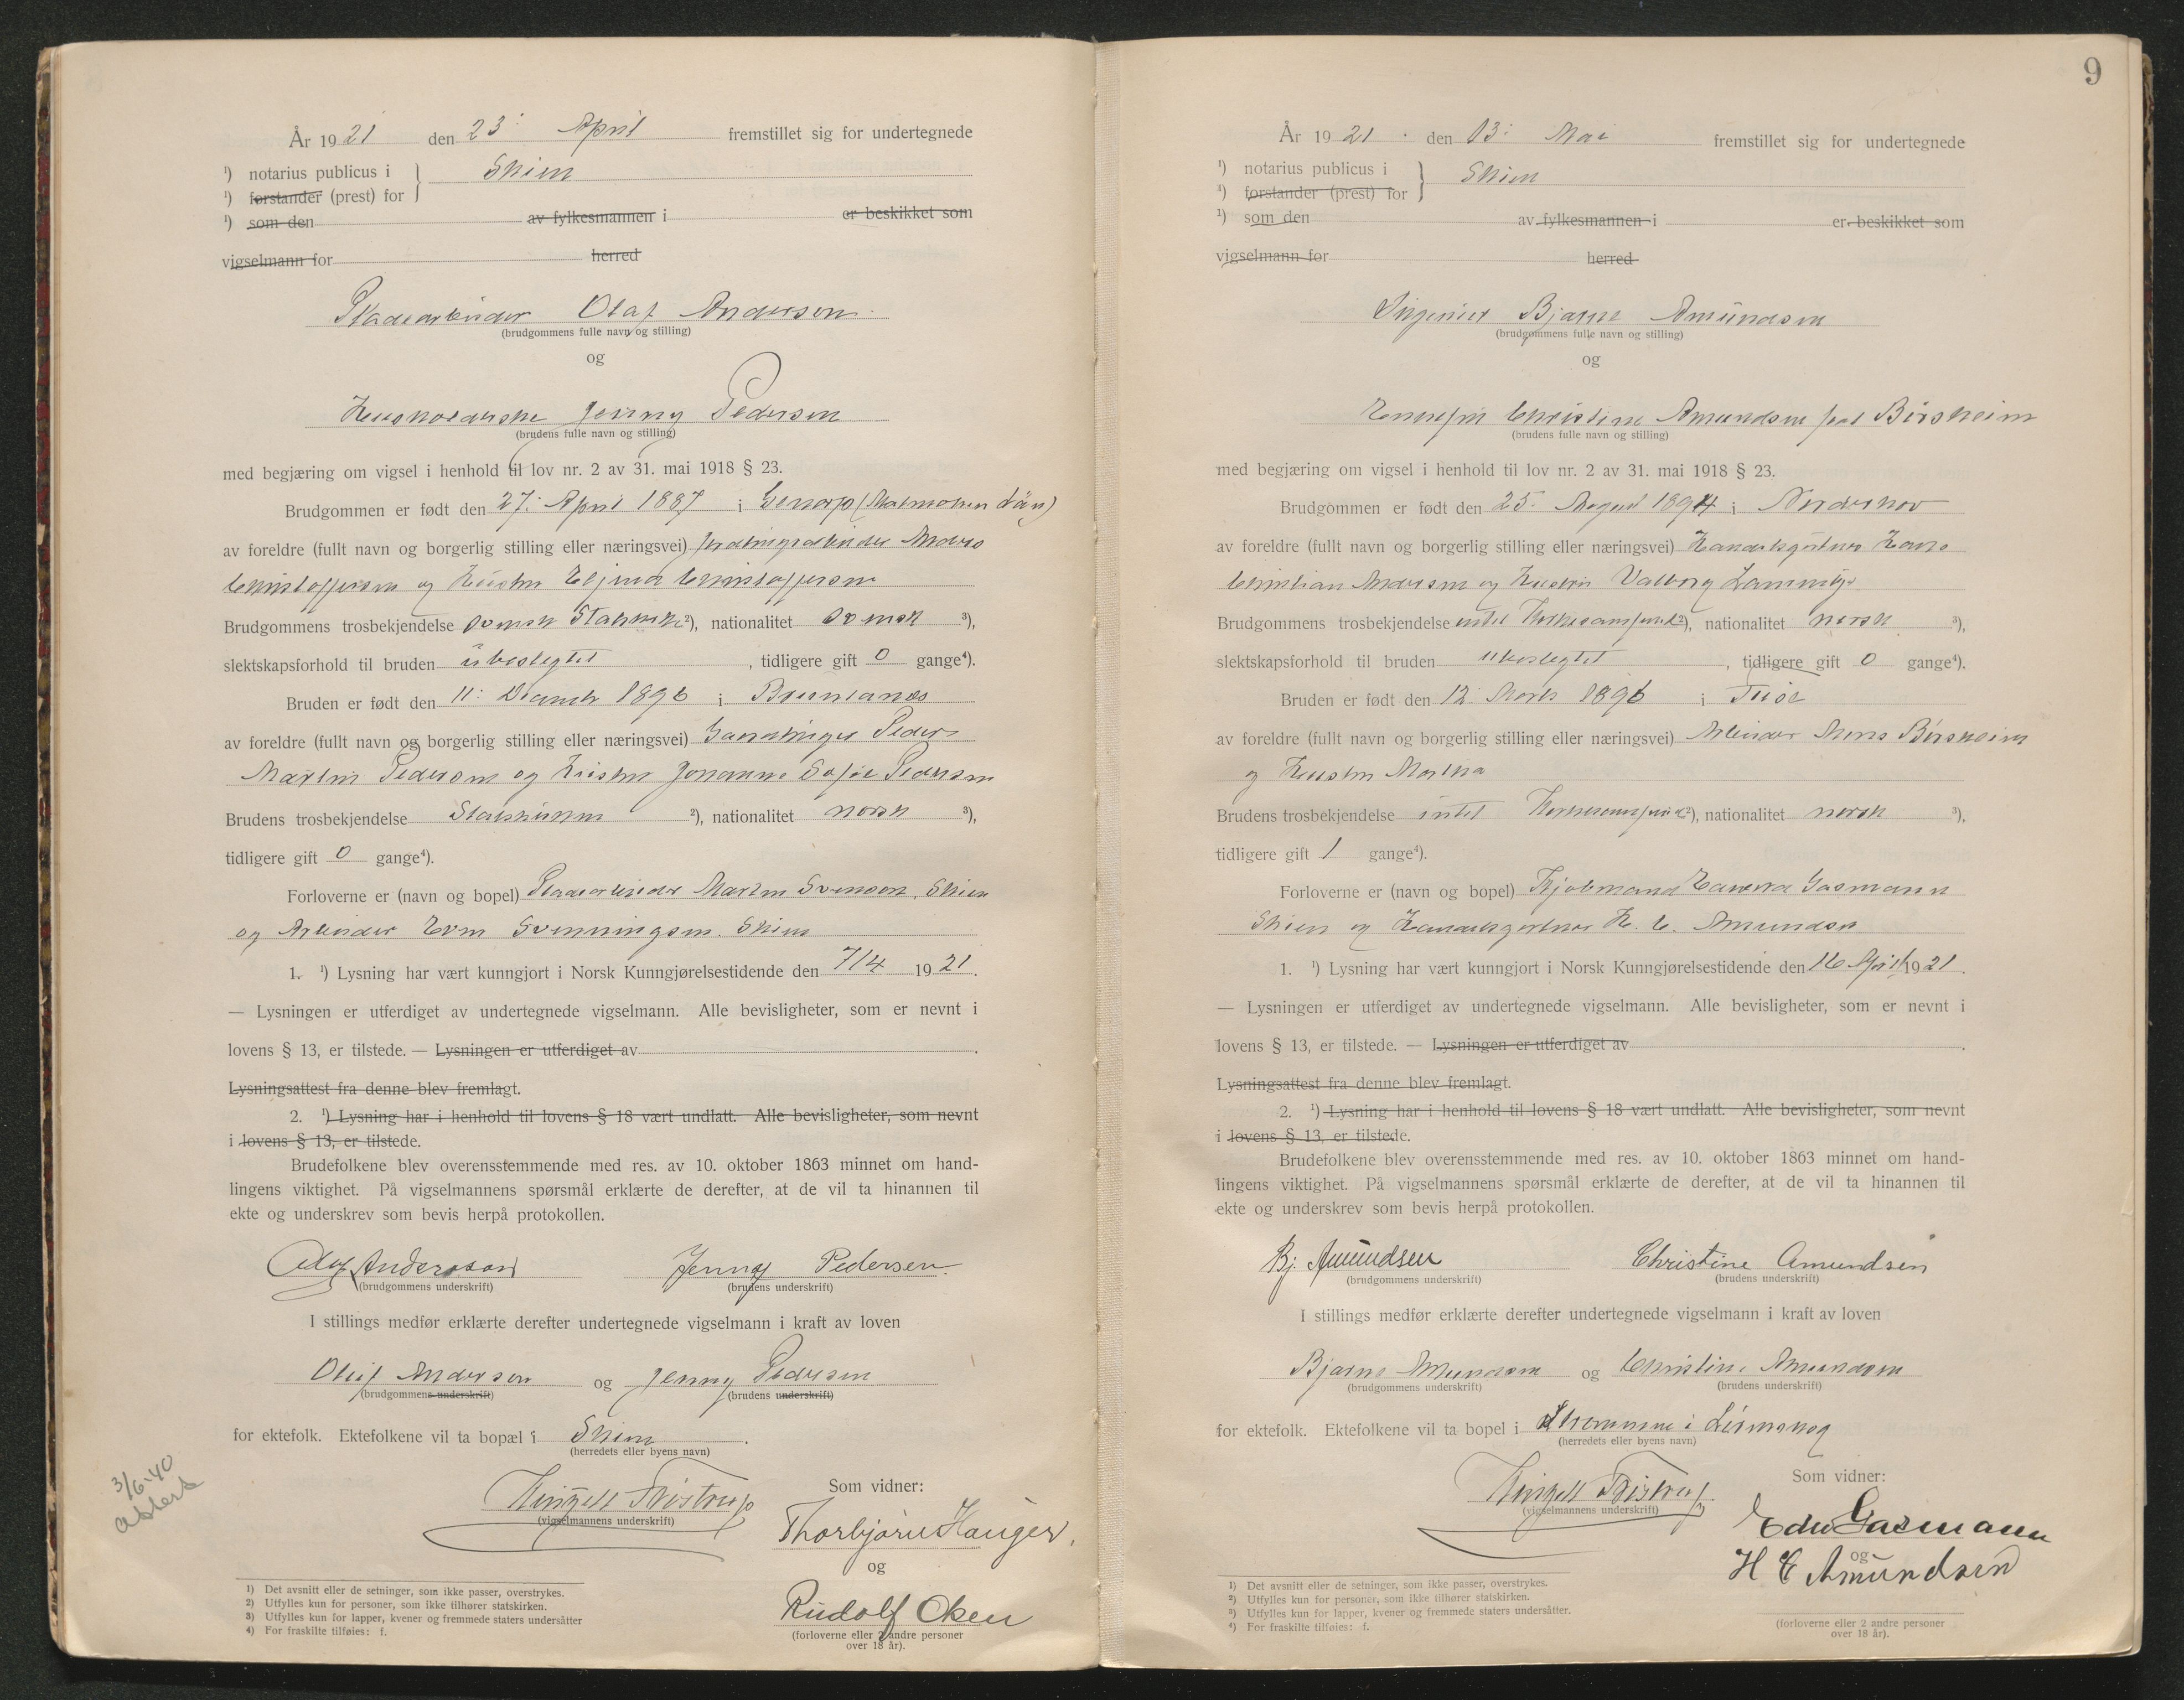 År 1921 den 23: April fremstillet sig for undertegnede
¹) notarius publicus i } Skien
¹) forstander (prest) for
¹) som den av fylkesmannen i er beskikket som
vigselmann for herred
Pladearbeider Olaf Andersen
(brudgommens fulle navn og stilling)
og
Husholderske Jenny Pedersen
(brudens fulle navn og stilling)
med begjæring om vigsel i henhold til lov nr. 2 av 31. mai 1918 § 23.
Brudgommen er født den 27: April 1887 i Genarp (Malmøhus Län)
av foreldre (fullt navn og borgerlig stilling eller næringsvei) Anders
Christoffersen og Hustru Christoffersen
Brudgommens trosbekjendelse svensk Statskirke ²), nationalitet svensk ³),
slektskapsforhold til bruden ubeslegtet, tidligere gift 0 gange⁴).
Bruden er født den 11: Decemb 1896 i Brunlanæs
av foreldre (fullt navn og borgerlig stilling eller næringsvei) Gaardbruger Peder
Martin Pedersen og Hustru Johanne Sofie Pedersen
Brudens trosbekjendelse Statskirken ²), nationalitet norsk ³),
tidligere gift 0 gange⁴).
Forloverne er (navn og bopel) Pladearbeider Martin Svensen, Skien
og Arbeider Svenningsen. Skien
1. ¹) Lysning har vært kunngjort i Norsk Kunngjørelsestidende den 7/4 1921.
— Lysningen er utferdiget av undertegnede vigselmann. Alle bevisligheter, som er nevnt i
lovens § 13, er tilstede. — Lysningen er utferdiget av
Lysningsattest fra denne blev fremlagt.
2. ¹) Lysning har i henhold til lovens § 18 vært undlatt. Alle bevisligheter, som nevnt
i lovens § 13, er tilstede.
Brudefolkene blev overensstemmende med res. av 10. oktober 1863 minnet om hand-
lingens viktighet. På vigselmannens spørsmål erklærte de derefter, at de vil ta hinannen til
ekte og underskrev som bevis herpå protokollen.
Olof Andersson Jenny Pedersen.
(brudgommens underskrift) (brudens underskrift)
I stillings medfør erklærte derefter undertegnede vigselmann i kraft av loven
Olaf Andersen og Jenny Pedersen
(brudgommens underskrift) (brudens underskrift)
for ektefolk. Ektefolkene vil ta bopæl i Skien.
(herredets eller byens navn)
3/6-40
attest
Som vidner:
(vigselmannens underskrift)
Thorbjørn Hauger.
og
Rudolf Olsen
(forloverne eller 2 andre personer
over 18 år).
¹) Det avsnitt eller de setninger, som ikke passer, overstrykes.
²) Utfylles kun for personer, som ikke tilhører statskirken.
³) Utfylles kun for lapper, kvener og fremmede staters undersåtter
⁴) For fraskilte tilføies: f.
9
År 1921 den 13: Mai fremstillet sig for undertegnede
¹) notarius publicus i } Skien
¹) forstander (prest) for
¹) som den av fylkesmannen i er beskikket som
vigselmann for herred
Ingeniør Bjarne Amundsen
(brudgommens fulle navn og stilling)
og
Christine Amundsen født Børsheim
(brudens fulle navn og stilling)
med begjæring om vigsel i henhold til lov nr. 2 av 31. mai 1918 § 23.
Brudgommen er født den 25. August 1894 i Norderhov
av foreldre (fullt navn og borgerlig stilling eller næringsvei) Handelsgartner Hans
Christian Amundsen og Hustru Valborg
Brudgommens trosbekjendelse intet Kirkesamfund ²), nationalitet norsk ³),
slektskapsforhold til bruden ubeslegtet, tidligere gift 0 gange⁴).
Bruden er født den 12. Marts 1896 i
av foreldre (fullt navn og borgerlig stilling eller næringsvei) Arbeider Mons Børsheim
og Hustru Martha
Brudens trosbekjendelse intet Kirkesamfund ²), nationalitet norsk ³),
tidligere gift 1 gange⁴).
Forloverne er (navn og bopel) Kjøbmand Gasmann
Skien og Handelsgartner H. C. Amundsen
1. ¹) Lysning har vært kunngjort i Norsk Kunngjørelsestidende den 16 April 1921.
— Lysningen er utferdiget av undertegnede vigselmann. Alle bevisligheter, som er nevnt i
lovens § 13, er tilstede. — Lysningen er utferdiget av
Lysningsattest fra denne blev fremlagt.
2. ¹) Lysning har i henhold til lovens § 18 vært undlatt. Alle bevisligheter, som nevnt
i lovens § 13, er tilstede.
Brudefolkene blev overensstemmende med res. av 10. oktober 1863 minnet om hand-
lingens viktighet. På vigselmannens spørsmål erklærte de derefter, at de vil ta hinannen til
ekte og underskrev som bevis herpå protokollen.
Bj. Amundsen Christine Amundsen
(brudgommens underskrift) (brudens underskrift)
I stillings medfør erklærte derefter undertegnede vigselmann i kraft av loven
Bjarne Amundsen og Christine Amundsen
(brudgommens underskrift) (brudens underskrift)
for ektefolk. Ektefolkene vil ta bopel i Strømmen i Lørenskog
(herredets eller byens navn)
Som vidner:
(vigselmannens underskrift)
Edw Gasmann
og
H C Amundsen
(forloverne eller 2 andre personer
over 18 år).
¹) Det avsnitt eller de setninger, som ikke passer, overstrykes.
²) Utfylles kun for personer, som ikke tilhører statskirken.
³) Utfylles kun for lapper, kvener og fremmede staters undersåtter.
⁴) For fraskilte tilføies: f.